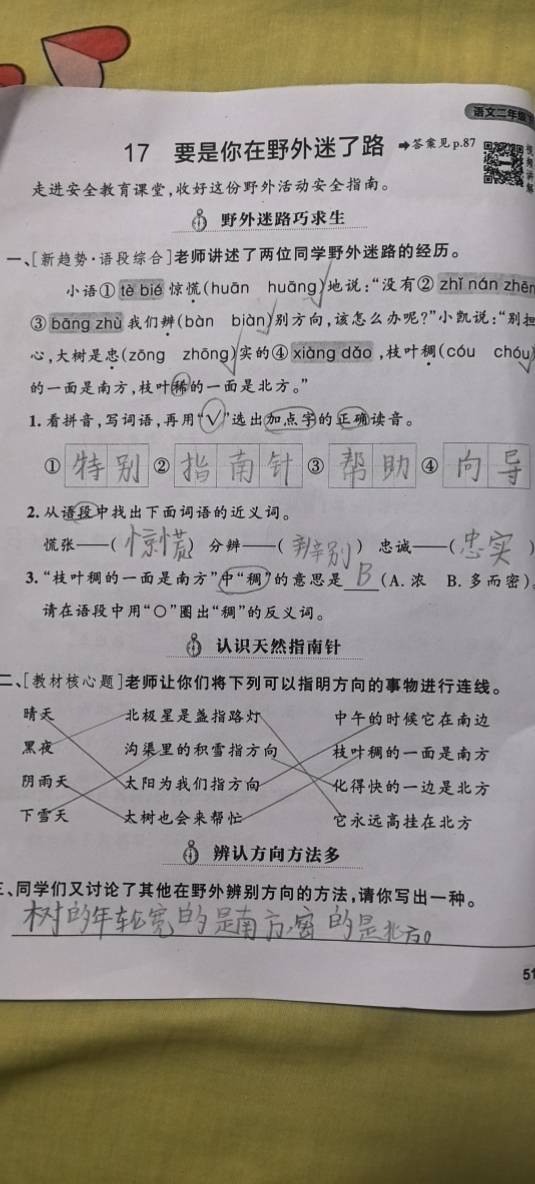 语文二年级
17 要是你在野外迷了路 ➡答案见p.87
视频讲解
走进安全教育课堂,收好这份野外活动安全指南。
野外迷路巧求生
一、[新趋势·语段综合]老师讲述了两位同学野外迷路的经历。
小语① tè bié 惊慌(huān huāng)地说:“没有② zhǐ nán zhēn
③ bāng zhù 我们辨(bàn biàn)别方向,该怎么办呢?”小凯说:“别担
心,大树是忠(zōng zhōng)实的④ xiàng dǎo ,枝叶稠(cóu chóu)
的一面是南方,枝叶稀的一面是北方。”
1. 看拼音,写词语,再用“√”选出加点字的正确读音。
① 特别 ② 指南针 ③ 帮助 ④ 向导
2. 从语段中找出下面词语的近义词。
慌张——( 惊慌 ) 分辨——( 辨别 ) 忠诚——( 忠实 )
3. “枝叶稠的一面是南方”中“稠”的意思是 B (A. 浓 B. 多而密)。
请在语段中用“○”圈出“稠”的反义词。
认识天然指南针
二、[教材核心题]老师让你们将下列可以指明方向的事物进行连线。
晴天 北极星是盏指路灯 中午的时候它在南边
黑夜 沟渠里的积雪指方向 枝叶稠的一面是南方
阴雨天 太阳为我们指方向 化得快的一边是北方
下雪天 大树也会来帮忙 它永远高挂在北方
辨认方向方法多
三、同学们又讨论了其他在野外辨别方向的方法,请你写出一种。
树的年轮宽的是南方,密的是北方。
51